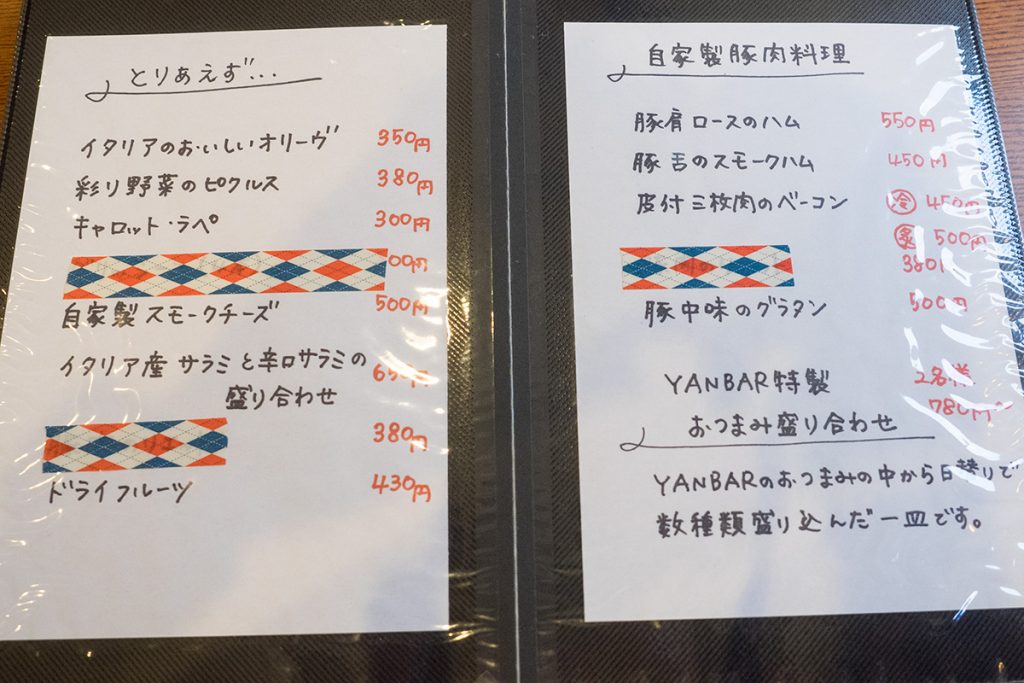 とりあえず...
イタリアのおいしいオリーヴ 350円
彩り野菜のピクルス 380円
キャロット・ラペ 300円
00円
自家製スモークチーズ 500円
イタリア産サラミと辛口サラミの
盛り合わせ
380円
ドライフルーツ 430円
自家製豚肉料理
豚肩ロースのハム 550円
豚舌のスモークハム 450円
皮付三枚肉のベーコン 冷 450円
炙 500円
380円
豚中味のグラタン 500円
YANBAR特製 2名様
おつまみ盛り合わせ 780円〜
YANBARのおつまみの中から日替りで
数種類盛り込んだ一皿です。